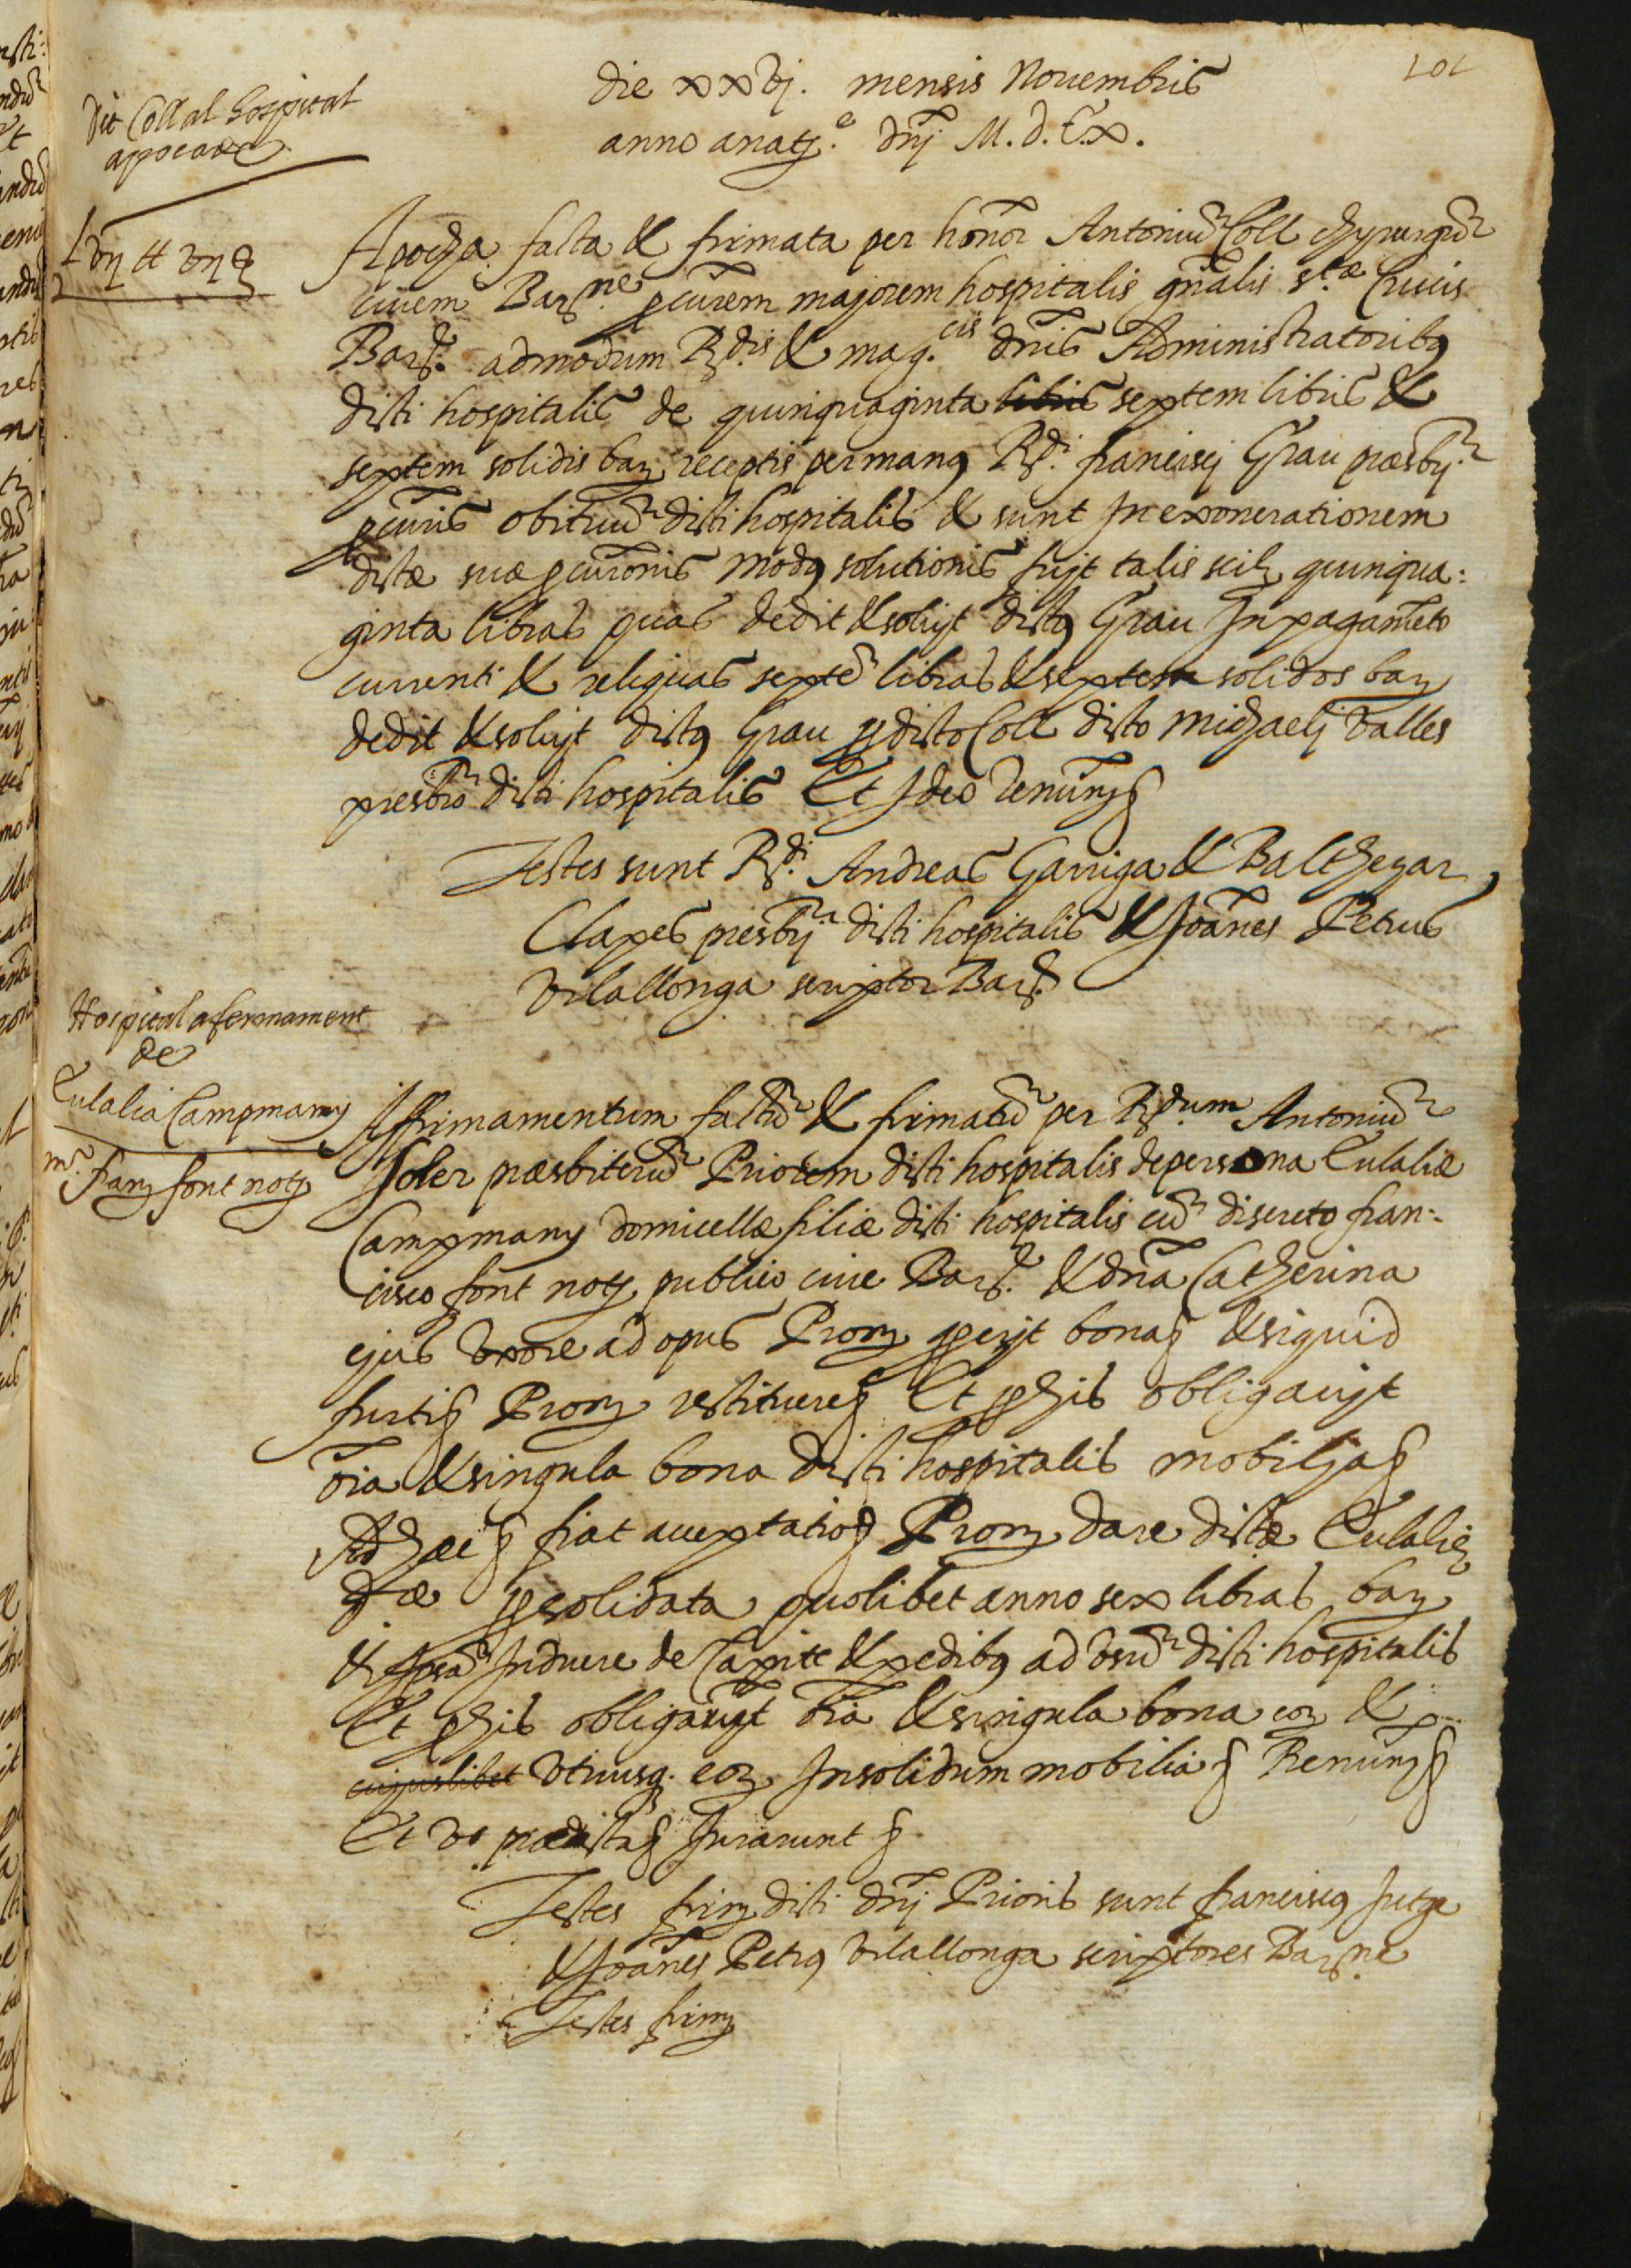 101
die xxvj. mensis Nouembris
anno a natj.e dnj M. d. C.x.
Dit Coll al hospital
appocaxx
Lvij ƚƚ vij ß
Apocha facta & firmata per honor Antoniu Coll chyrurgu
ciuem Barne. pcurem majorem hospitalis gnalis s.tæ Crucis
Bar. admodum Rdis & mag.cis dnis Administratoribq
dicti hospitalis de quinquaginta libris septem libris &
septem solidis bar receptis per manq Rdi franciscj Grau præsbj
pcuris obituu dicti hospitalis & sunt In exonerationem
dictæ suæ pcuronis modq solutionis fujt talis scilz quinqua:
ginta libras quas dedit & soluit dictq Grau In pagameto
currenti & reliquas septe libras & septem solidos bar
dedit & soluit dictq Grau p dicto Coll dicto michaelj valles
presbro dicti hospitalis Et Ideo renun
Testes sunt Rdi Andreas Garriga & Balthezar
Clapes presbj dicti hospitalis & Joanes Petrus
Vilallonga scriptor Bar.
Hospital afermament
de
Eulalia Campmany
m. franc font notj
Affirmamentum factu & firmatu per Rdum Antoniu
soler præsbiteru Priorem dicti hospitalis de persona Eulaliæ
Campmany domicellæ filiæ dicti hospitalis cu discreto fran:
cisco font notj publico ciue Bar. & dna Catherina
ejus vxore ad opus Prom gerit bona & si quid
furti Prom restituere Et p his obligauit
oia & singula bona dicti hospitalis mobilia
Ad hæc fiat acceptatio Prom dare dictæ Eulaliæ
p solidata quolibet anno sex libras bar
& Ipsa Induere de Capite & pedibq ad vsu dicti hospitalis
Et p his obligaut oia & singula bona eor &
cujuslibet vtriusq. eor Insolidum mobilia Renun
Et vt prædicta Jurarunt
Testes firm dicti dnj Prioris sunt franciscq Jutge
& Joanes Petrq Vilallonga scriptores Barne
Testes firm